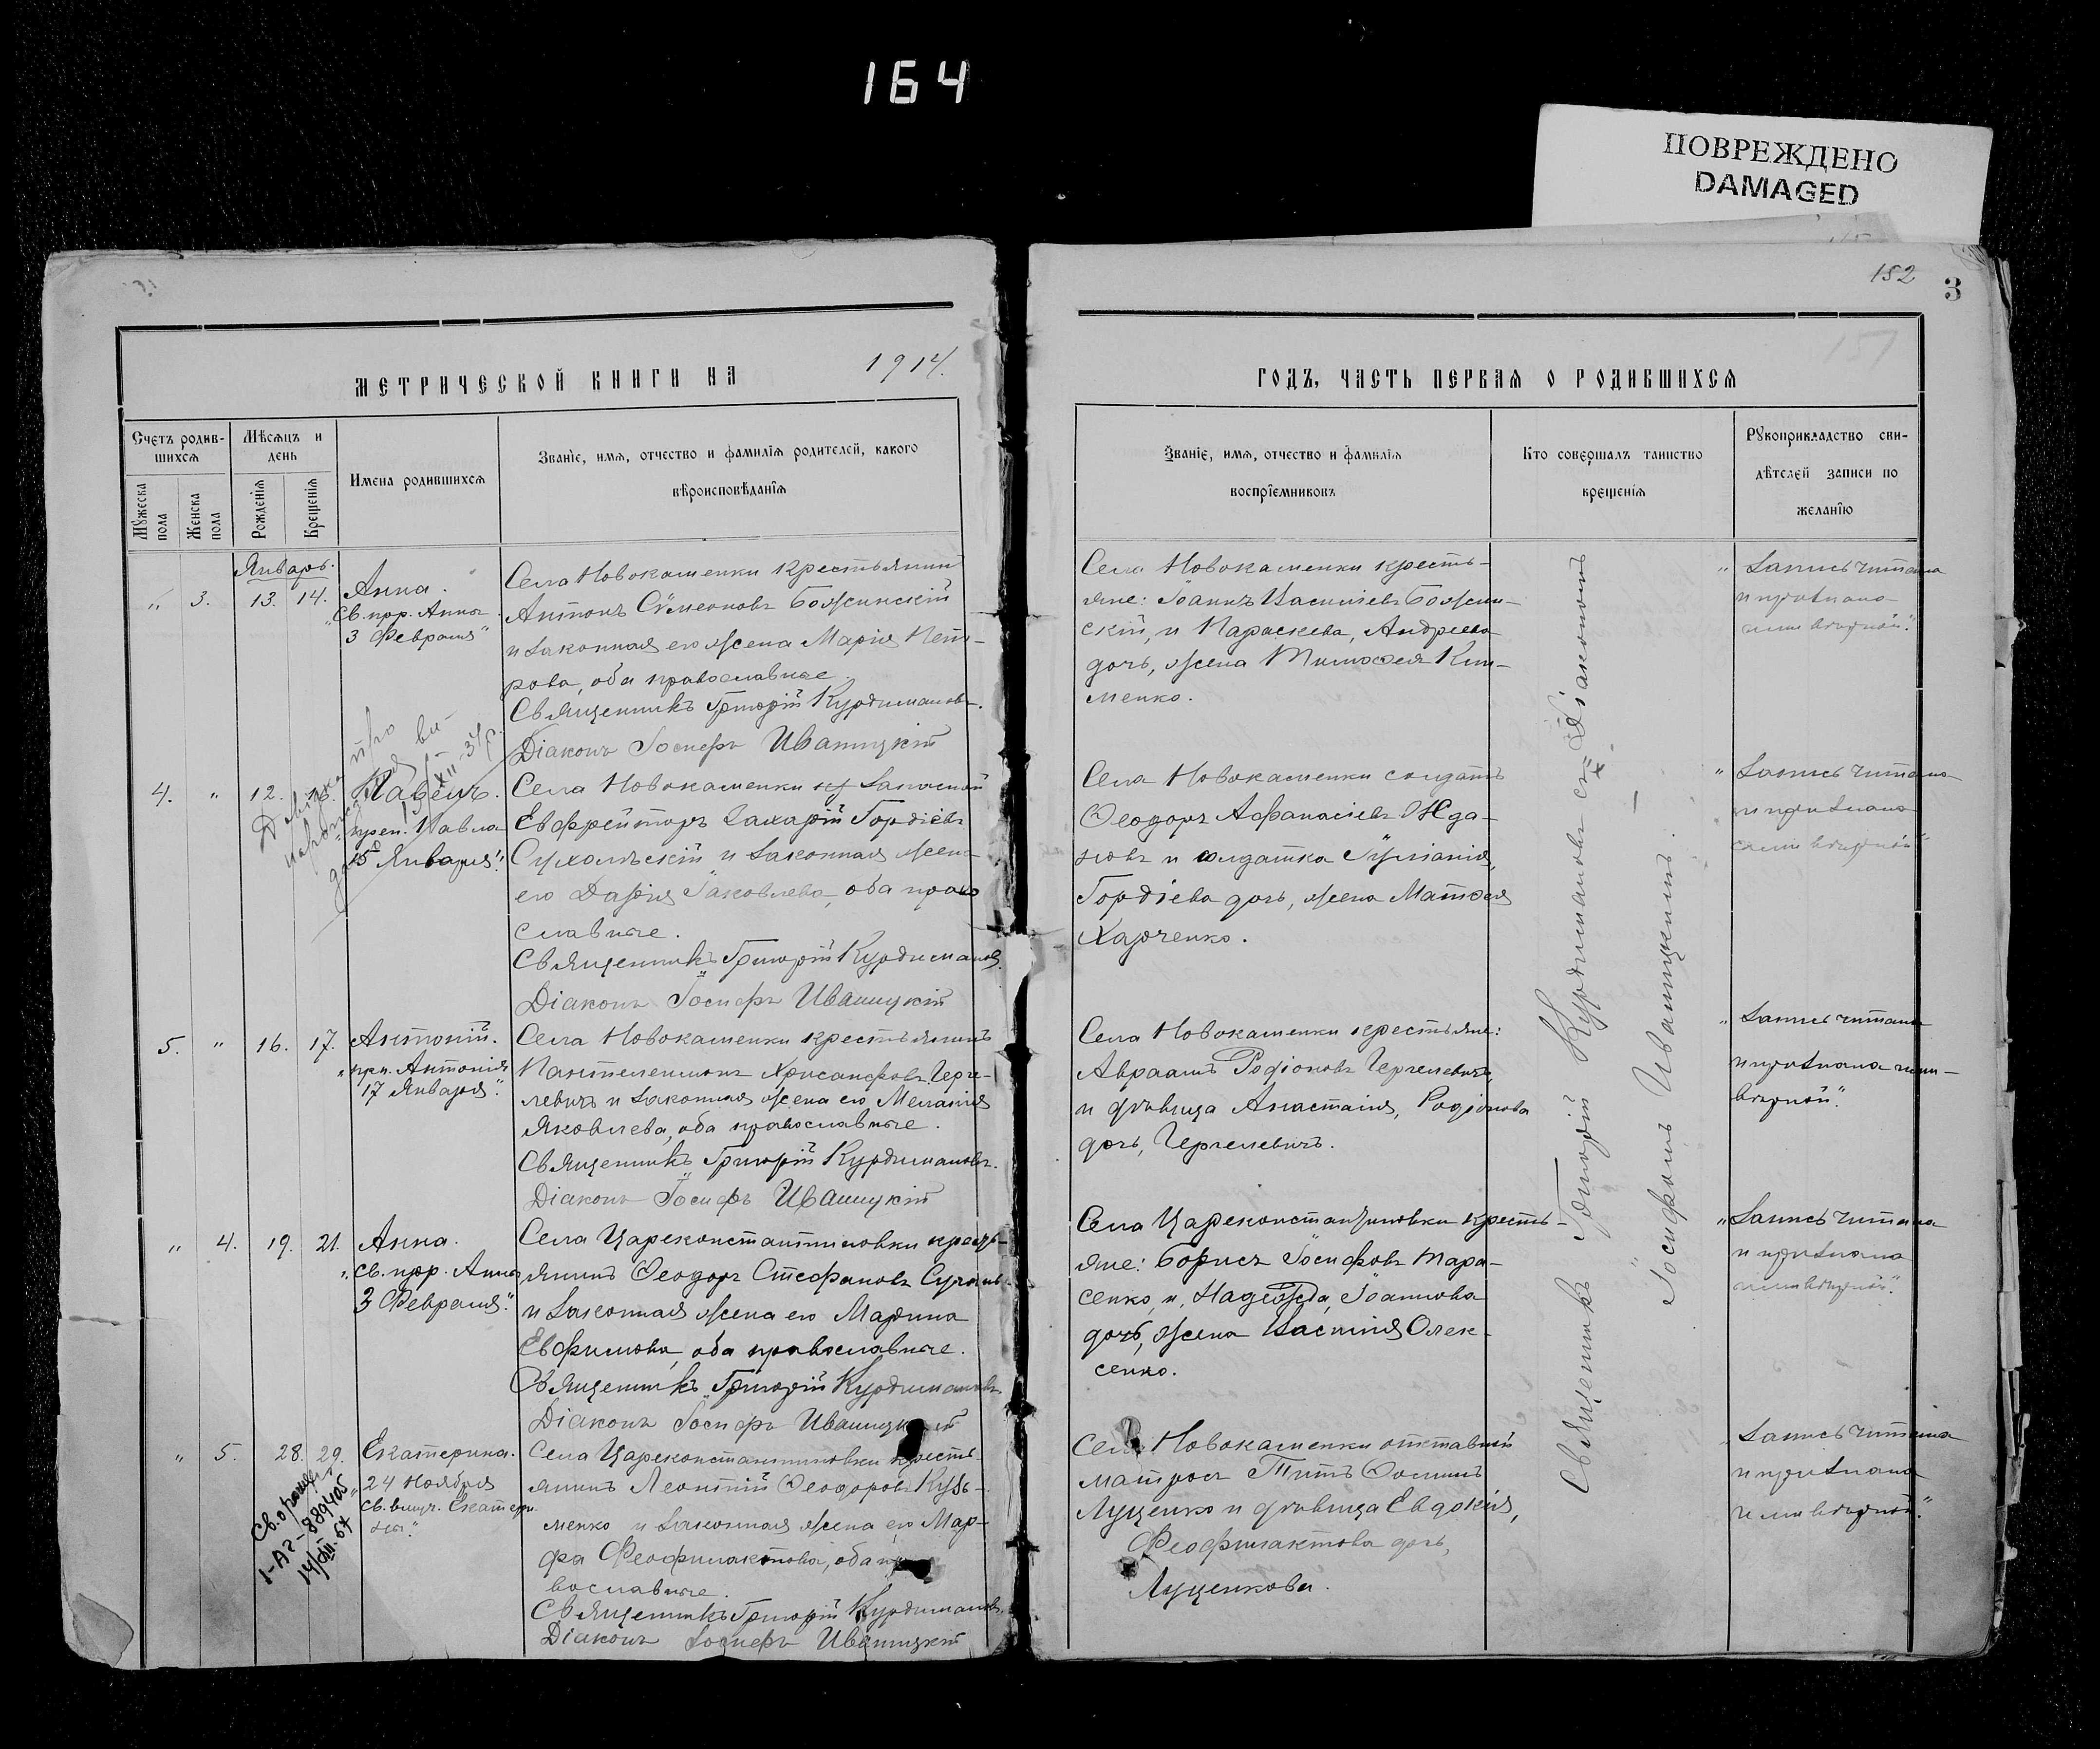 164
ПОВРЕЖДЕНО
DAMAGED
152
3
151
МЕТРИЧЕСКОЙ КНИГИ НА 1914.
ГОДЪ, ЧАСТЬ ПЕРВАЯ О РОДИВШИХСЯ
Счетъ родив-
шихся
Мѣсяцъ и
день
Мужеска
пола
Женска
пола
Рожденія
Крещенія
Имена родившихся
Званіе, имя, отчество и фамилія родителей, какого
вѣроисповѣданія
Званіе, имя, отчество и фамилія
воспріемниковъ
Кто совершалъ таинство
крещенія
Рукоприкладство сви-
дѣтелей записи по
желанію
Январь.
" 3. 13. 14.
Анна.
"Св. прр. Анны
3 Февраля"
Села Новокаменки крестьянин
Антонъ Сѵмеоновъ Божинскій
и законная его жена Марія Пет-
рова, оба православные.
Священникъ Григорій Курдимановъ.
Діаконъ Іосифъ Иваницкій
Села Новокаменки кресть-
яне: Іоаннъ Василіевъ Божин-
скій, и Параскева, Андреева
дочь, жена Тимофея Кли-
менко.
"Запись читана
и признана
ими вѣрной."
4. " 12. 13.
Павелъ.
"преп. Павла
15 Января."
Села Новокаменки запасной
Ефрейторъ Захарій Гордіевъ
и законная жена
его Дарія Іаковлева, оба право
славные.
Священникъ Григорій Курдимановъ.
Діаконъ Іосифъ Иваницкій
Села Новокаменки солдатъ
Ѳеодоръ Афанасіевъ Жда-
новъ и солдатка Іуліанія,
Гордіева дочь, жена Матфея
Харченко.
"Запись читана
и признана
ими вѣрной"
5. " 16. 17.
Антоній.
"прп. Антонія
17 Января".
Села Новокаменки крестьянинъ
Пантелеимонъ Хрисанфовъ Черге-
левичъ и законная жена его Меланія
Яковлева, оба православные.
Священникъ Григорій Курдимановъ.
Діаконъ Іосифъ Иваницкій
Села Новокаменки крестьяне:
Авраамъ Родіоновъ Чергелевичъ,
и дѣвица Анастасія, Родіонова
дочь, Чергелевичъ.
"Запись читана
и признана ими
вѣрной".
" 4. 19. 21.
Анна.
"Св. прр. Анны
3 Февраля".
Села Цареконстантиновки кресть-
янинъ Ѳеодоръ Стефановъ
и законная жена его Марина
Евфимова, оба православные.
Священникъ Григорій Курдимановъ
Діаконъ Іосифъ Иваницкій
Села Цареконстантиновки кресть-
яне: Борисъ Іосифовъ Тара-
сенко, и, Надежда, Іоаннова
дочь, жена Василія Олек-
сенко.
"Запись читана
и признана
ими вѣрной".
" 5. 28. 29.
Екатерина.
24 Ноября
"Св. вмуч. Екатери
ны."
Села Цареконстантиновки кресть
янинъ Леонтій Ѳеодоровъ Кузь-
менко и законная жена его Мар-
фа Феофилактова, оба пра
вославные.
Священникъ Григорій Курдимановъ
Діаконъ Іосифъ Иваницкій
Села Новокаменки отставный
матросъ Титъ Фоминъ
Луценко и дѣвица Евдокія,
Феофилактова дочь,
Луценкова.
Запись читана
и признана
ими вѣрной."
Священникъ Григорій Курдимановъ съ Діакономъ
Іосифомъ Иваницкимъ.